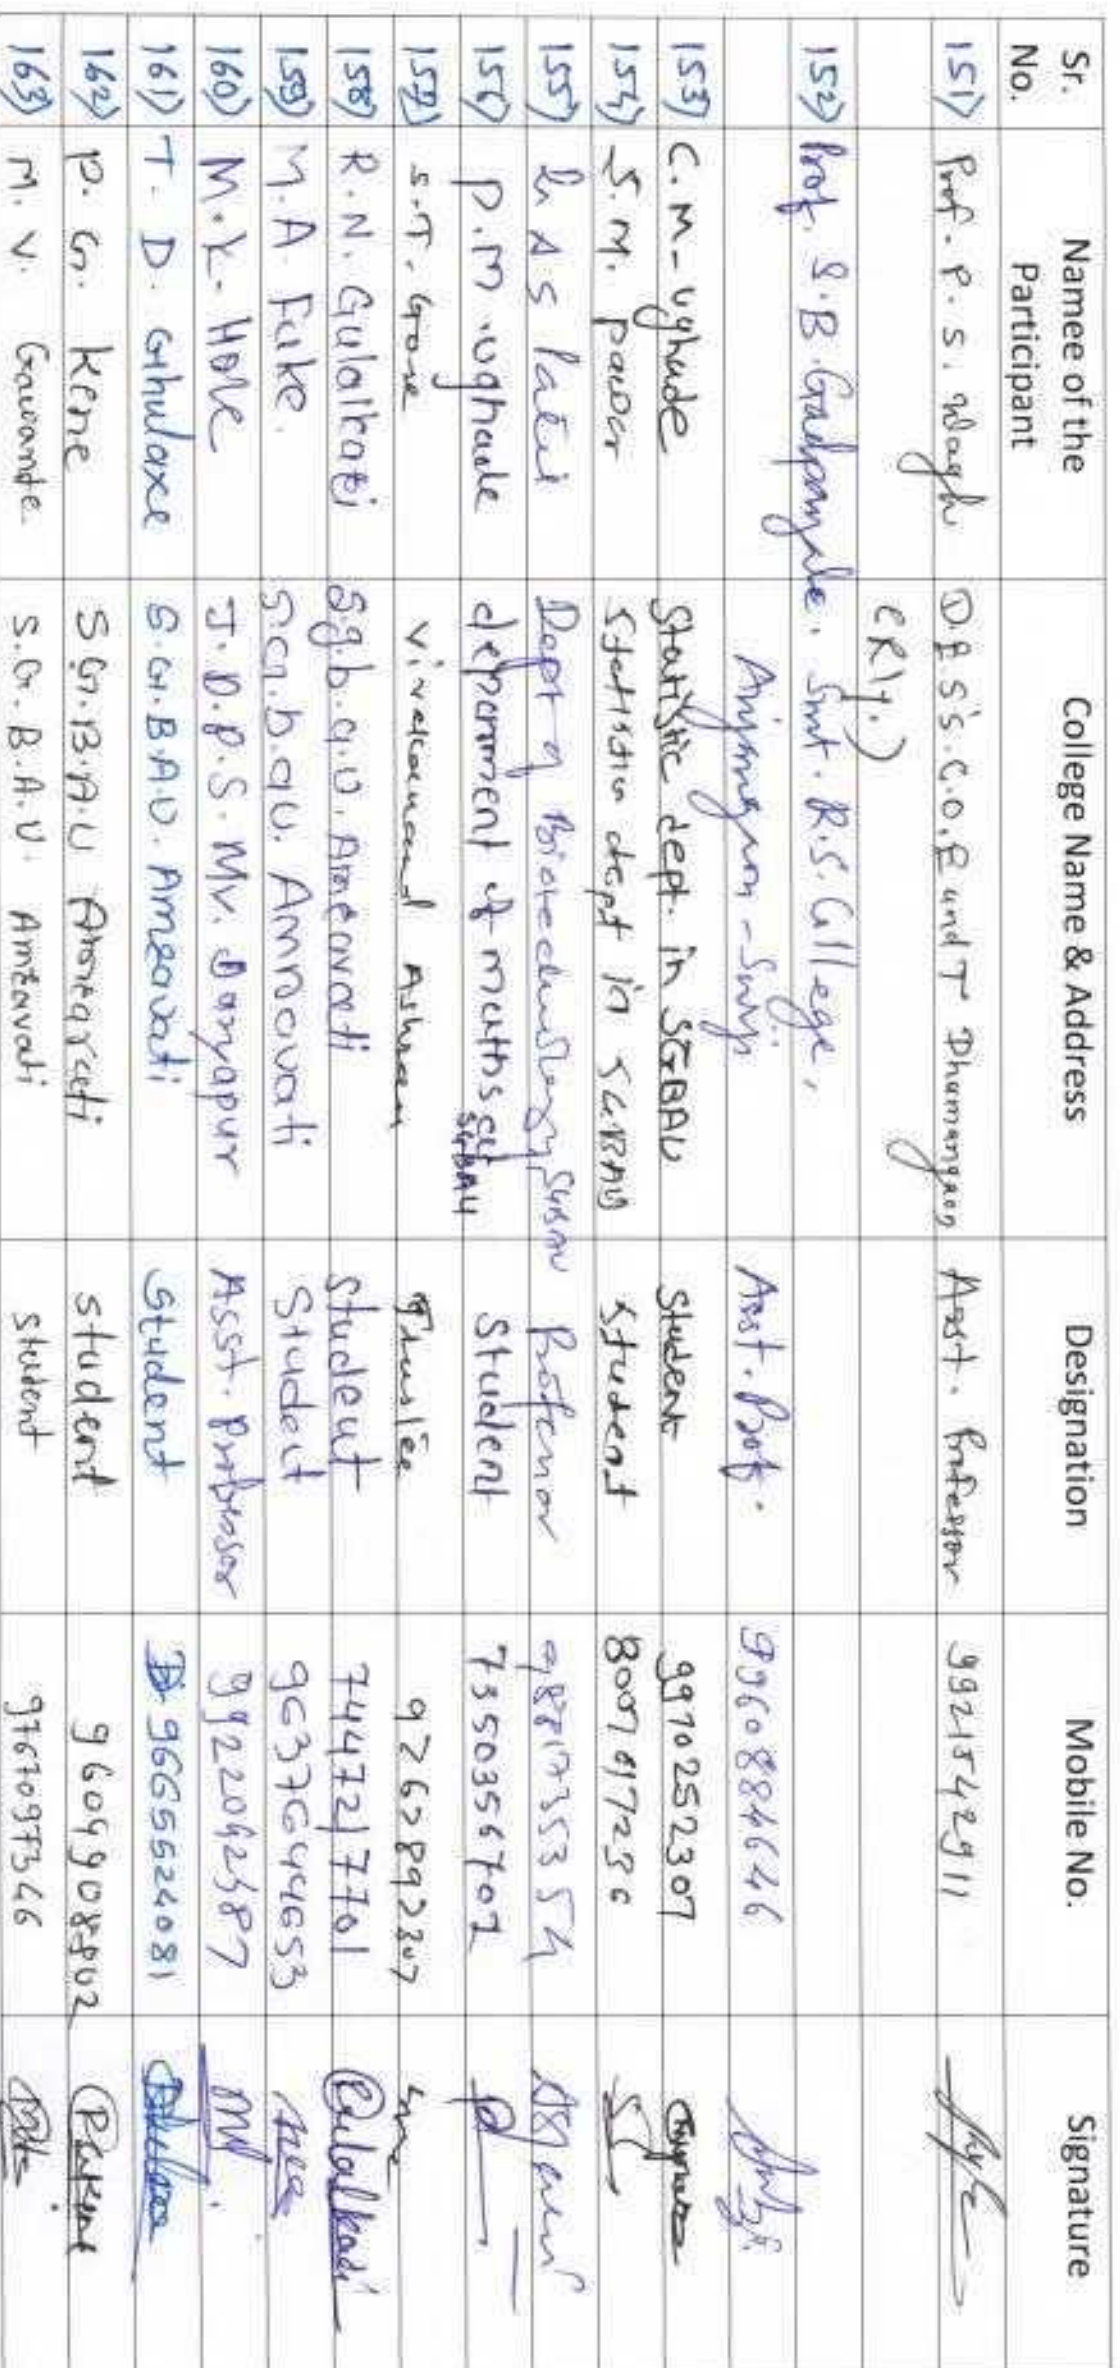 Sr. No. Namee of the Participant College Name & Address Designation Mobile No. Signature
151) Prof. P. S. Wagh DES's.C.O.E and T Dhamangaon Asst. Professor 9921542911
(Rly.)
152) Prof. S.B. Gadpayale. Smt. R.S. College,
Anjangaon-Surji Asst. Prof. 9960884646
153) C.M-Ughade Statistic dept. in SGBAU Student 9970252307
154) S.M. pawar dept in SGBAU student
155) Dept of Biotechnology, SGBAU Professor
156) P.M.ughade deparment of meths at SGBAU Student 7350356702
157) S.T. Gore vivekanand Ashram 9262892207
158) R.N. Gulalkari S.g.b.a.u. Amravati student 7447217701
159) M.A. Fuke. S.G.b.aU. Amravati Student
160) M.K. Hole J.D.P.S. Mv. Daryapur Asst. Professor
161) T. D. Ghulaxe S.G.B.A.U. Amravati Student 9665524081
162) P. G. Kene S.G.B.A.U Amaravati student
163) M. V. Gawande. S.G.B.A.U. Amravati student 9767097346